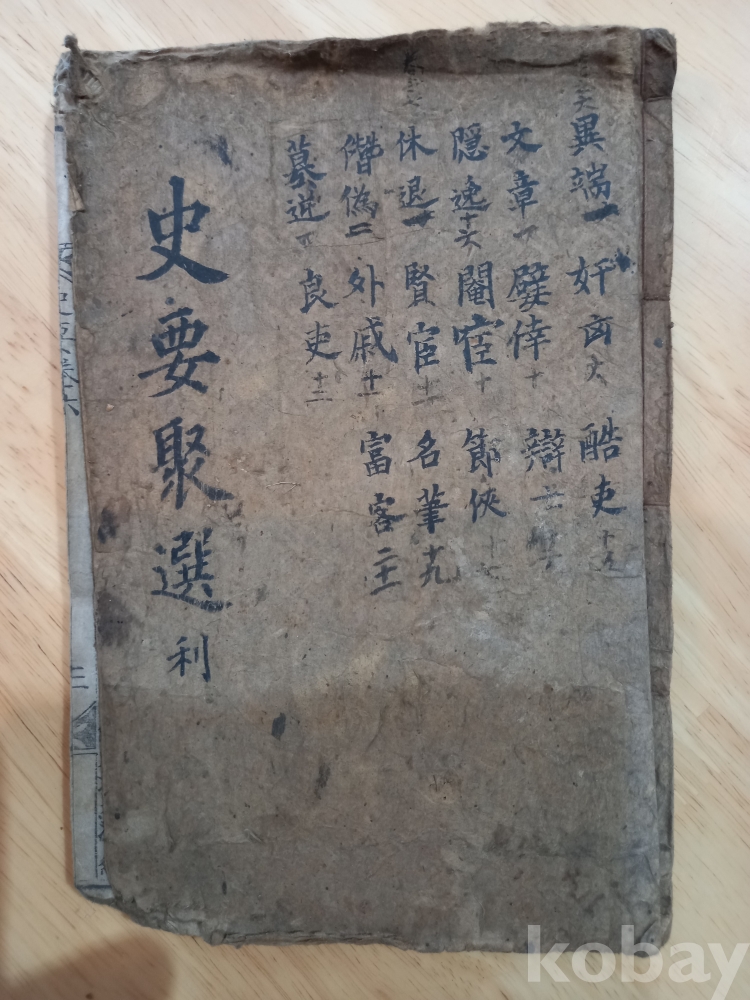 史要聚選 利
異端一 奸凶六 酷吏十九
文章一 嬖倖十 辯士
隱逸十六 閹宦十 節俠十七
休退一 賢宦十一 名筆十九
僭偽二 外戚十一 富客二十一
墓逆 良吏十二
史要卷六
三
kobay